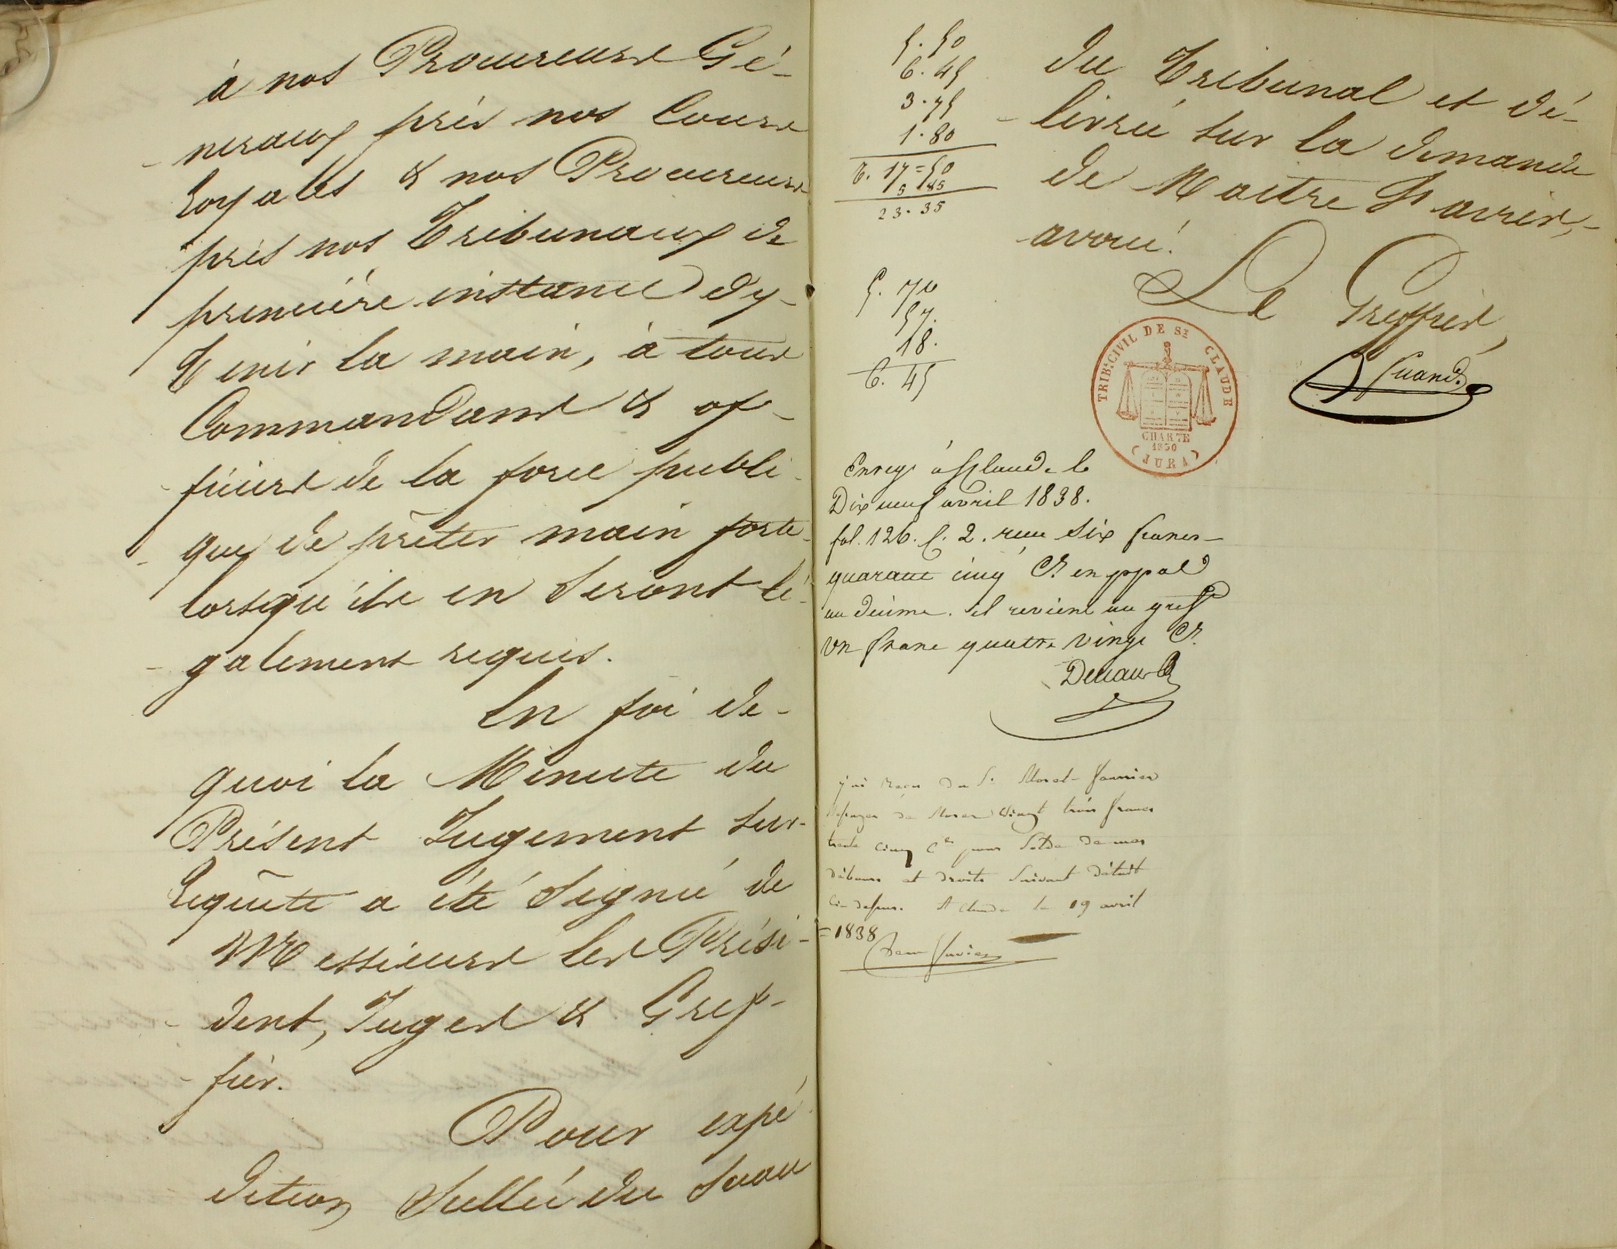 à nos Procureurs Gé-
-néraux près nos Cours
Royales & nos Procureurs
près nos Tribunaux de
première instance d'y
tenir la main, à tous
Commandans & of-
-ficiers de la force publi-
-que de prêter main forte
lorsqu'ils en seront lé-
-galement requis.
En foi de
quoi la Minute du
Présent Jugement sur
Requête a été signée de
MMessieurs les Prési-
-dent, Juges & Gref-
fier.
Pour expé
dition Scellée du Sceau
5. 50
6. 45
3. 75
1. 80
T. 17=50
5 85
23. 35
du Tribunal et dé-
-livrée sur la demande
de Maître
avoué.
Le Greffier,
5. 70
57.
18.
6. 45
TRIB. CIVIL DE St. CLAUDE
CHARTE
1830
(JURA)
Enregé à St Claude le
Dix neuf avril 1838.
fol. 126. C. 2. reçu Six francs
quarante cinq Cs. en ppal
un décime. il revient au greff
Un franc quatre vingt Cs.
j'ai reçu du Sr. Morel-fournier
de Morez vingt trois francs
trente cinq Cs pour Solde de mes
débours et droits suivant détail
Ci-dessus. St Claude le 19 avril
=1838